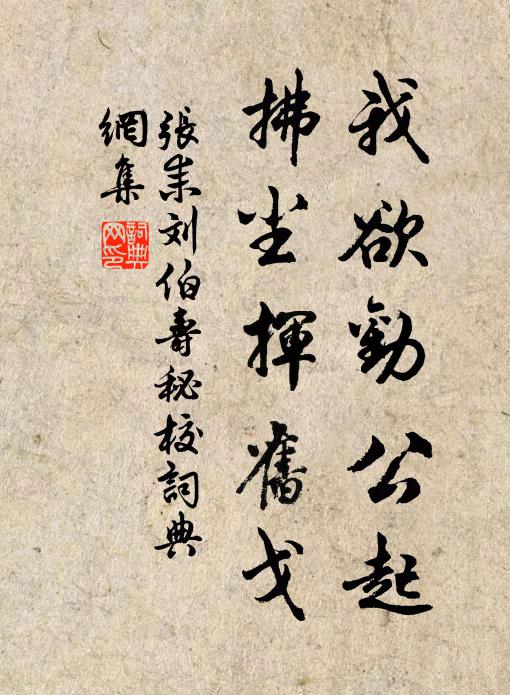 我欲勸公起
拂尘揮舊戈
張耒刘伯壽秘校詞典
網集
詞典
网印